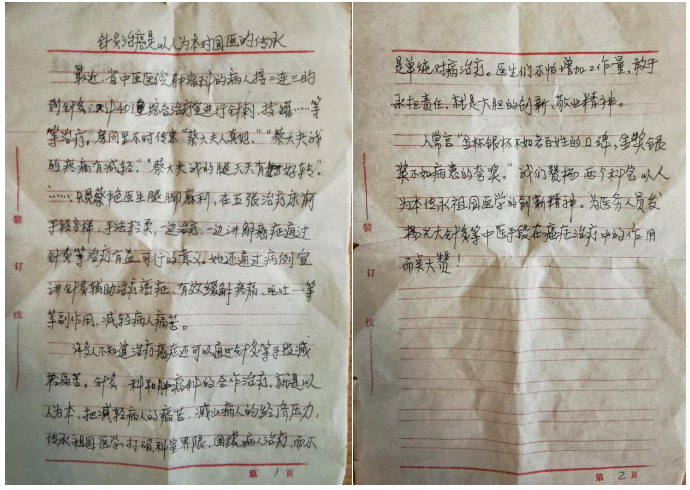 针灸治癌是以人为本对国医的传承
最近，省中医医院肿瘤科的病人接二连三的
到针灸 综合治疗室进行针刺、拔罐……等
等治疗。房间里不时传来“蔡大夫真好”“蔡大夫我
的疼痛有减轻”“蔡大夫我的腿天天有好转。”
……只见蔡艳医生腿脚麻利，在五张治疗床前
手段多样，手法轻柔，一边治疗，一边讲解癌症通过
针灸等治疗有益，可行的意义。她还通过病例宣
讲针灸辅助治疗癌症，有效缓解疼痛、呕吐……等
等副作用，减轻病人痛苦。
许多人不知道治疗癌症还可以通过针灸等手段减
轻痛苦。针灸科和肿瘤科的合作治疗，就是以
人为本，把减轻病人的痛苦，减少病人的经济压力，
传承祖国医学，打破科室界限，围绕病人治疗，而不
装
订
线
第 1 页
是单纯对病治疗。医生们不怕增加工作量，敢于
承担责任，就是大胆的创新、敬业精神。
人常言“金杯银杯不如老百姓的口碑，金奖银
奖不如病患的夸奖。”我们赞扬两个科室以人
为本传承祖国医学的创新精神。为医务人员发
扬光大针灸等中医手段在癌症治疗中的作用
而点大赞！
装
订
线
第 2 页